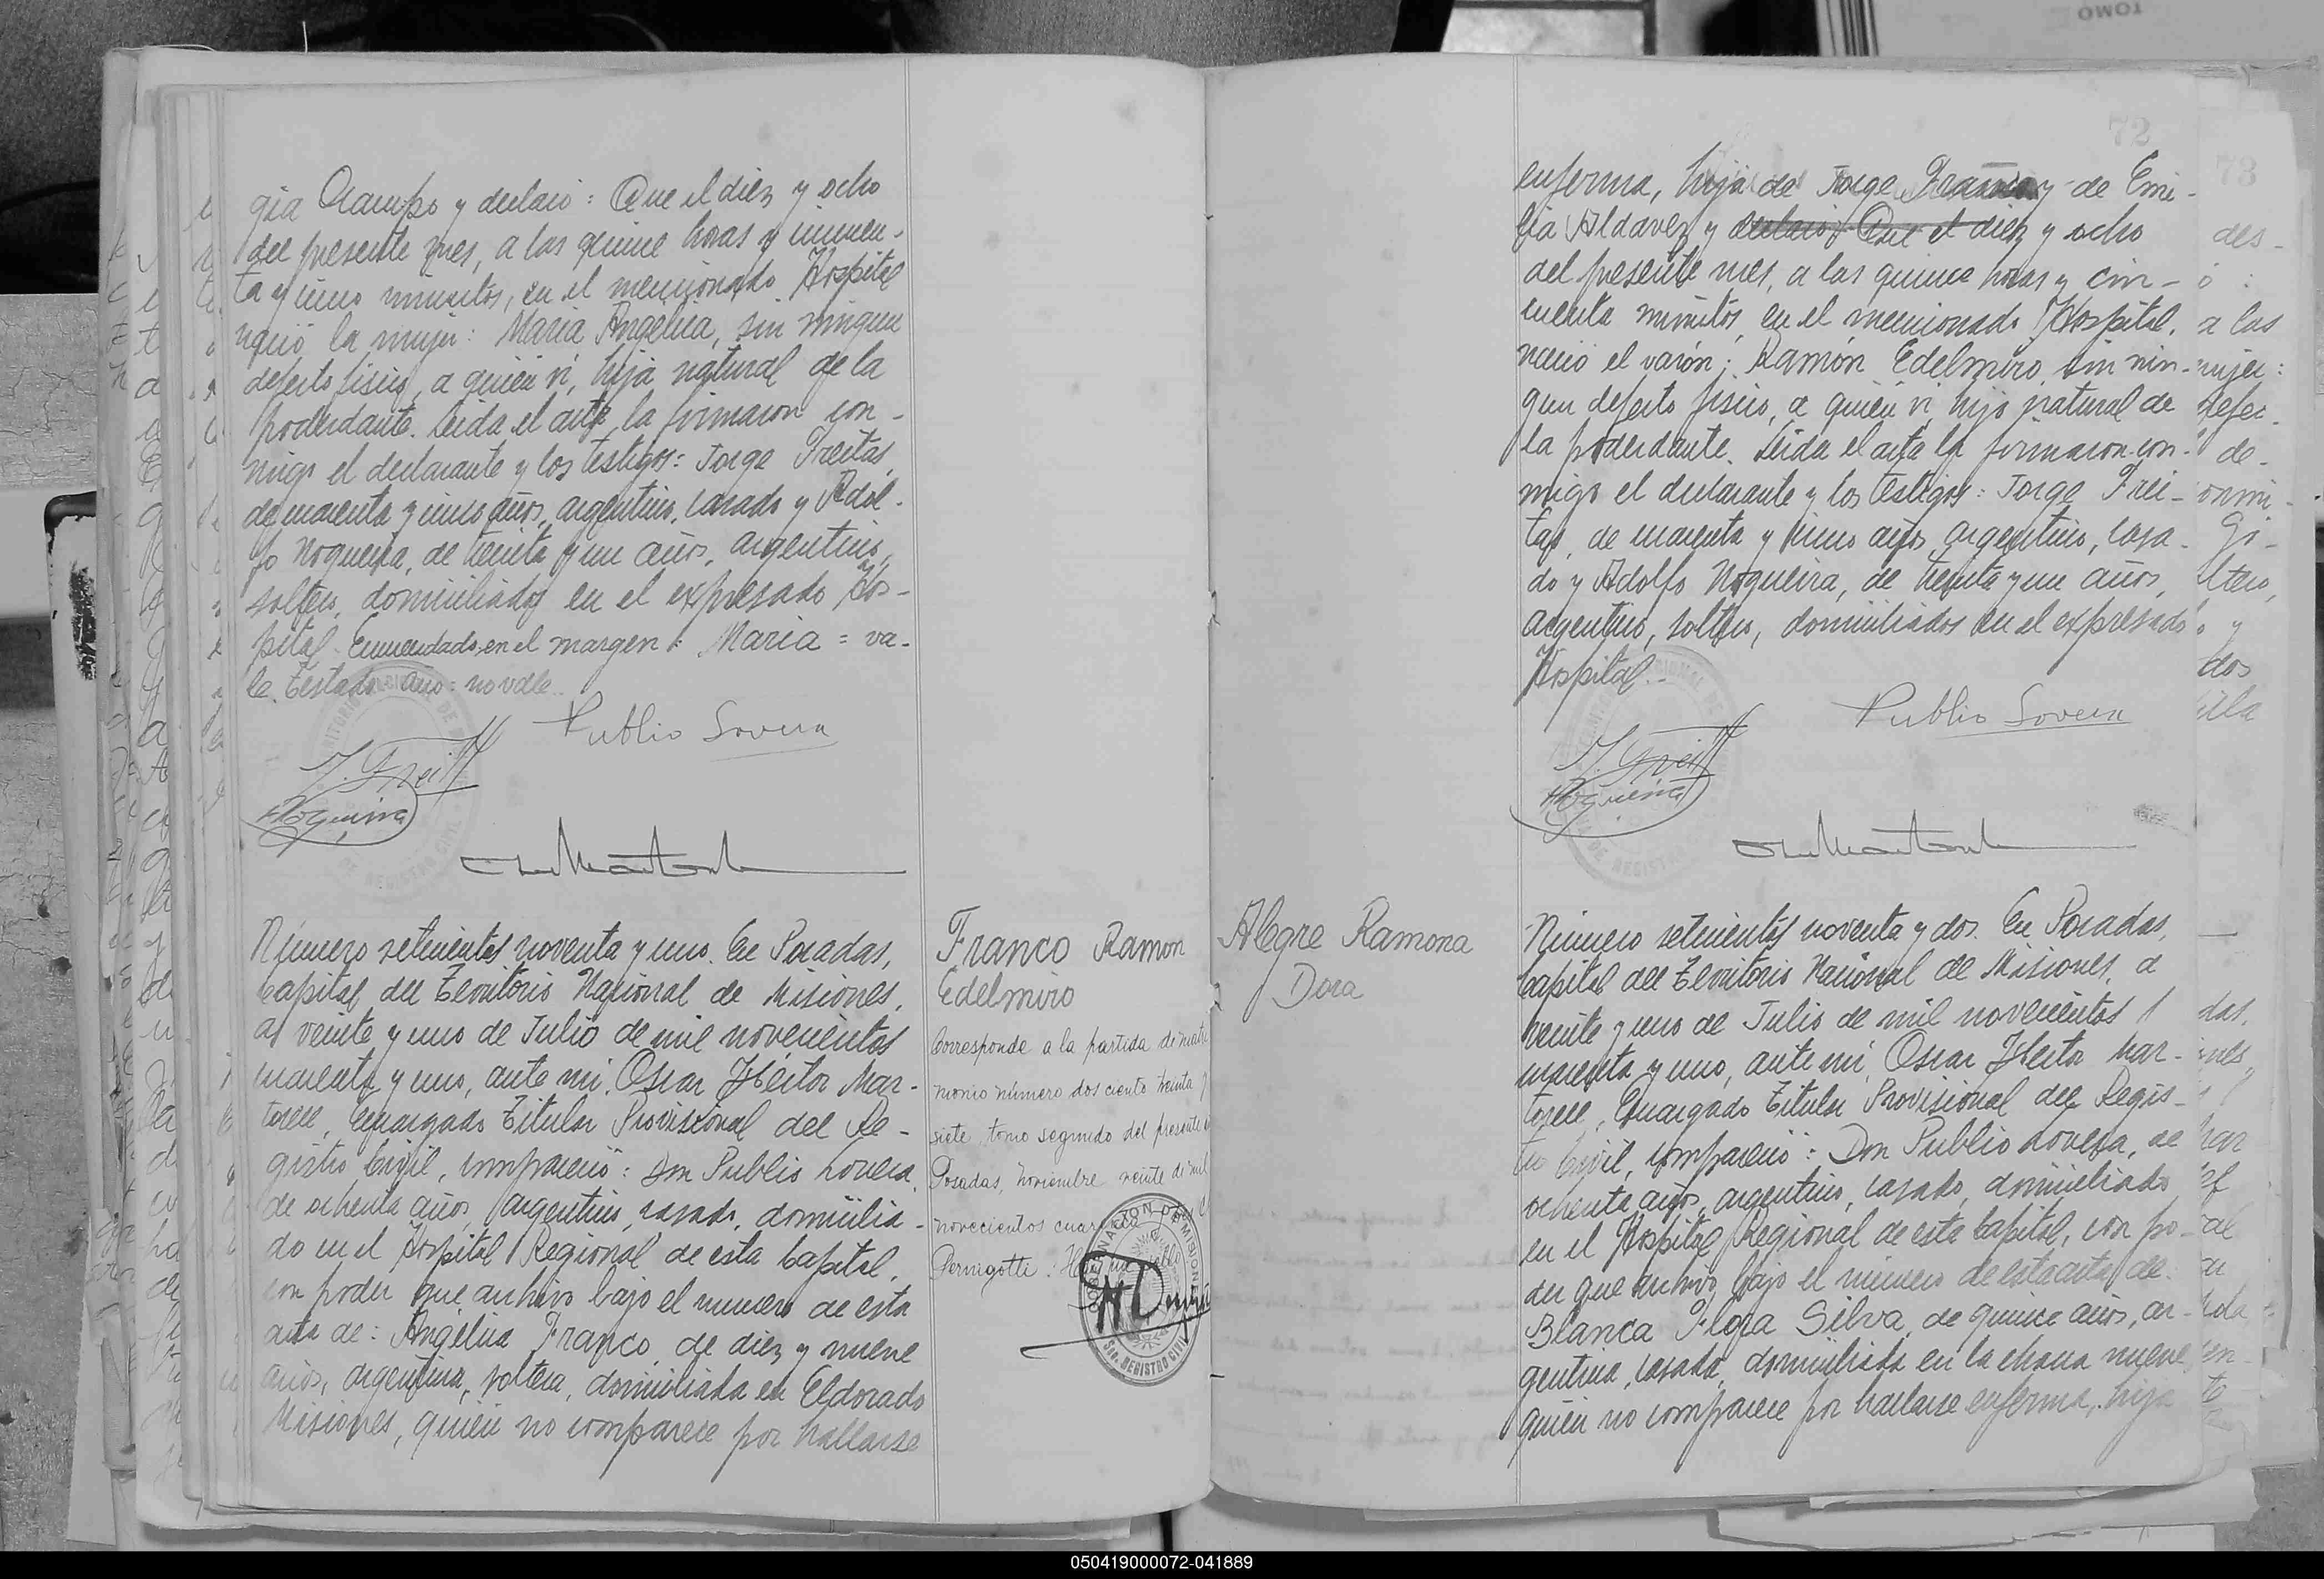 gia Ocampo y declaró: Que el diez y ocho
del presente mes, a las quince horas y cincuen-
ta y cinco minutos, en el mencionado Hospital
nació la mujer: Maria Angélica, sin ningun
defecto fisico, a quién ví, hija natural de la
poderdante. Leida el acta, la firmaron con-
migo el declarante y los testigos: Jorge Freitas,
de cuarenta y cinco años, argentino, casado y Adol-
fo Nogueira, de treinta y un años, argentino,
soltero, domiciliados en el expresado Hos-
pital. Enmendado en el margen: Maria = va-
le. Testado: año: no vale.
Publio Lovera
J. Freit
ANogueira
Número setecientos noventa y uno. En Posadas,
Capital del Territorio Nacional de Misiones,
a veinte y uno de Julio de mil novecientos
cuarenta y uno, ante mi, Oscar Héctor Mar-
torell, Encargado Titular Provisional del Re-
gistro Civil, compareció: Don Publio Lovera,
de ochenta años, argentino, casado, domicilia-
do en el Hospital Regional de esta Capital,
con poder que archivo bajo el numero de esta
acta de: Angélica Franco, de diez y nueve
años, argentina, soltera, domiciliada en Eldorado
Misiones, quién no comparece por hallarse
Franco Ramon
Edelmiro
Corresponde a la partida de matri
monio número dos ciento treinta y
siete, tomo segundo del presente
Posadas, Noviembre veinte de mil
novecientos cuar
Pernigotti
GOBERNACION DE MISIONES
Sec. REGISTRO CIVIL
72
enferma, hija de Jorge Franco y de Emi-
lia Aldavez y declaró: Que el diez y ocho
del presente mes, a las quince horas y cin-
cuenta minutos, en el mencionado Hospital,
nació el varón: Ramón Edelmiro, sin nin-
gun defecto fisico, a quién ví, hijo natural de
la poderdante. Leida el acta la firmaron con-
migo el declarante y los testigos: Jorge Frei-
tas, de cuarenta y cinco años, argentino, casa-
do y Adolfo Nogueira, de treinta y un años,
argentino, soltero, domiciliados en el expresado
Hospital.-
Publio Lovera
J. Freit
ANogueira
Alegre Ramona
Dora
Número setecientos noventa y dos. En Posadas,
Capital del Territorio Nacional de Misiones, a
veinte y uno de Julio de mil novecientos
cuarenta y uno, ante mi, Oscar Héctor Mar-
torell, Encargado Titular Provisional del Regis-
tro Civil, compareció: Don Publio Lovera, de
ochenta años, argentino, casado, domiciliado
en el Hospital Regional de esta Capital, con po-
der que archivo bajo el número de esta acta de:
Blanca Flora Silva, de quince años, ar-
gentina, casada, domiciliada en la chacra nueve
quién no comparece por hallarse enferma, hija
73
TOMO
050419000072-041889